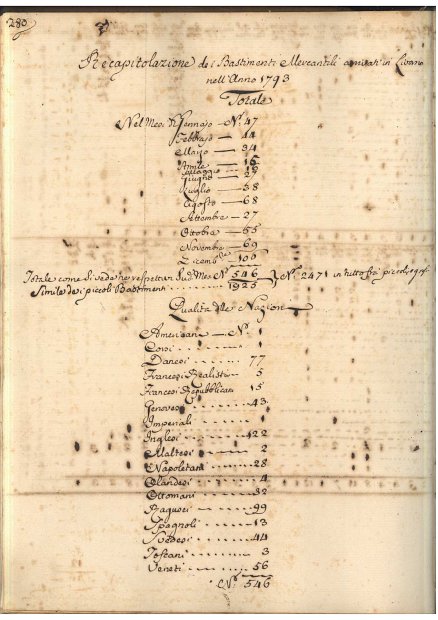 280
Recapitolazione dei Bastimenti Mercantili arrivati in Livorno
nell'Anno 1793
Totale
Nel Mese di Gennajo — N.º 47
Febbrajo — 44
Marzo — 34
Aprile — 16
Maggio — 19
Giugno — 27
Luglio — 38
Agosto — 68
Settembre — 27
Ottobre — 55
Novembre — 69
Dicembre 100
Totale come si vede ne' respettivi suoi Mesi N.º 546 } N.º 2471 in tutto fra piccoli e grossi
Simile dei piccoli Bastimenti 1925
Qualità delle Nazioni
Americani — N.º 1
Corsi 1
Danesi 77
Francesi Realisti 5
Francesi Repubblicani 15
Genovesi 43
Imperiali 1
Inglesi 122
Maltesi 2
Napoletani 28
Olandesi 4
Ottomani 32
Ragusei 99
Spagnoli 13
Svedesi 44
Toscani 3
Veneti 56
N.º 546